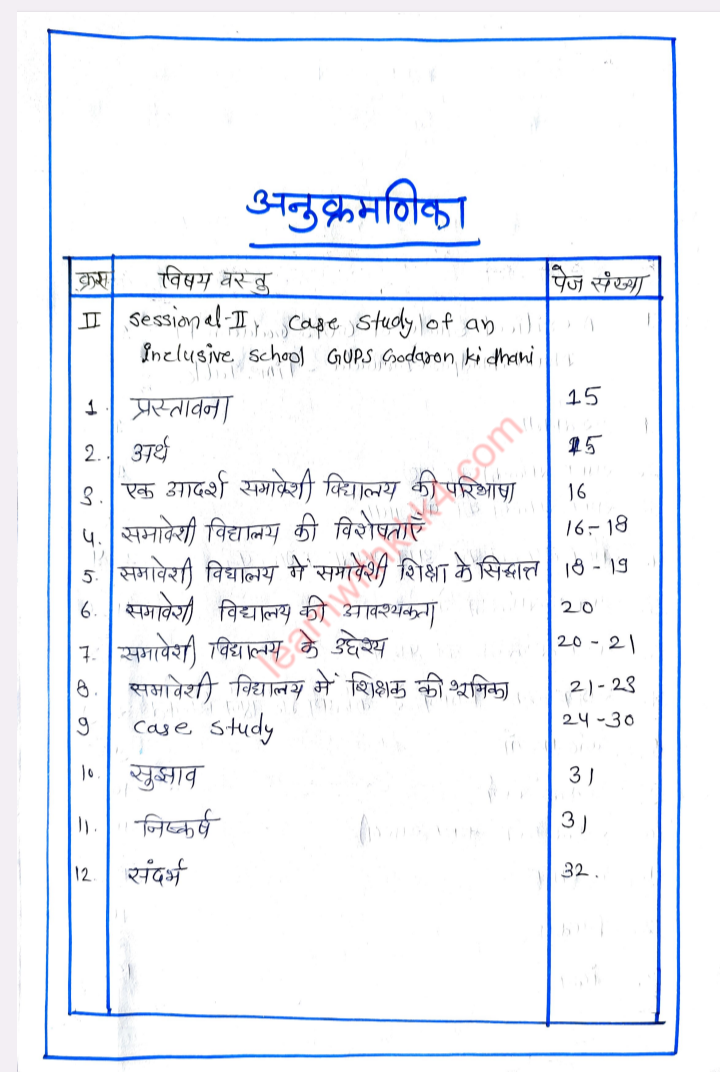 अनुक्रमणिका
क्रस विषय वस्तु पेज संख्या
II Sessional-II, Case Study of an
Inclusive School GUPS Godaron ki dhani
1. प्रस्तावना 15
2. अर्थ 15
3. एक आदर्श समावेशी विद्यालय की परिभाषा 16
4. समावेशी विद्यालय की विशेषताएँ 16-18
5. समावेशी विद्यालय में समावेशी शिक्षा के सिद्धान्त 18-19
6. समावेशी विद्यालय की आवश्यकता 20
7. समावेशी विद्यालय के उद्देश्य 20-21
8. समावेशी विद्यालय में शिक्षक की भूमिका 21-23
9 Case Study 24-30
10. सुझाव 31
11. निष्कर्ष 31
12. संदर्भ 32.
learnwithkkk4.com